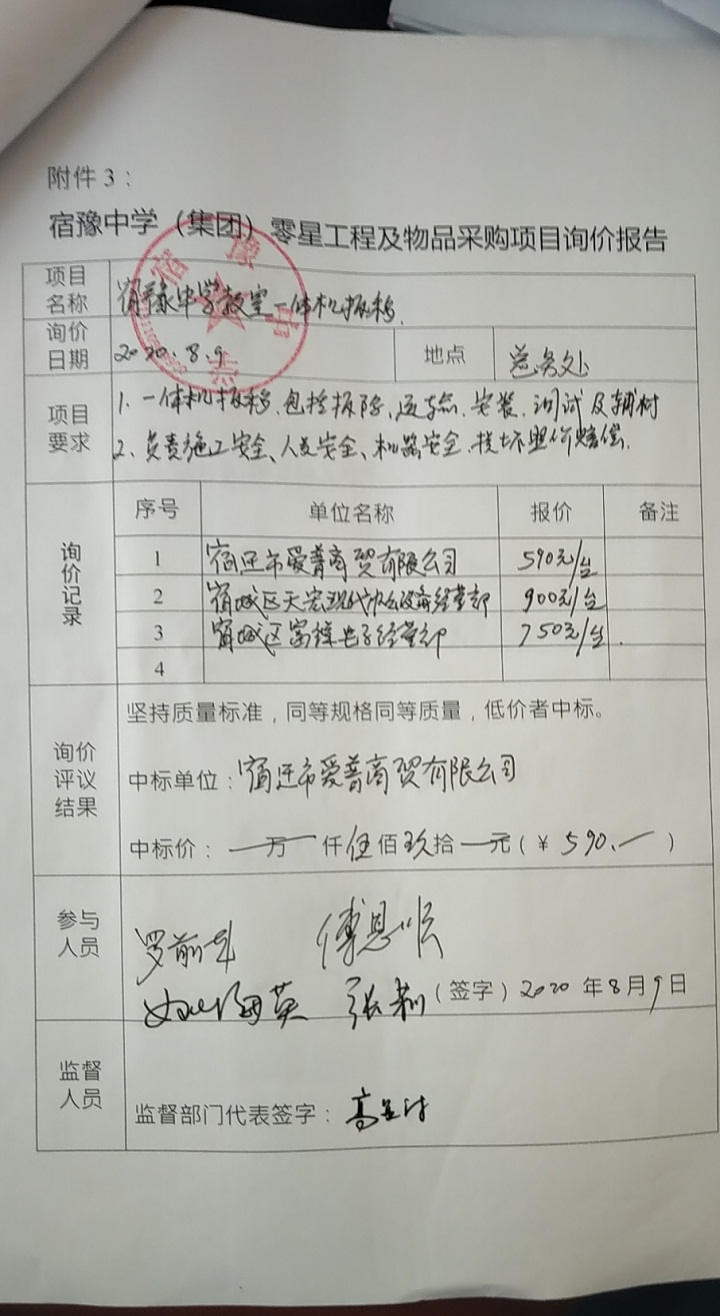 附件3：
宿豫中学（集团）零星工程及物品采购项目询价报告
项目名称 宿豫中学教室一体机拆移
询价日期 2020.8.9 地点 总务处
项目要求 1、一体机拆移、包括拆除、运输、安装、调试及辅材
2、负责施工安全、人员安全、机器安全、损坏照价赔偿.
询价记录 序号 单位名称 报价 备注
1 宿迁市爱普商贸有限公司 590元/台
2 宿城区天宏现代办公设备经营部 900元/台
3 宿城区 电子经营部 750元/台.
4
询价评议结果 坚持质量标准，同等规格同等质量，低价者中标。
中标单位：宿迁市爱普商贸有限公司
中标价：万 仟伍佰玖拾 元（¥590.）
参与人员 罗前 傅恩顺
英 张莉（签字）2020年8月9日
监督人员 监督部门代表签字：高